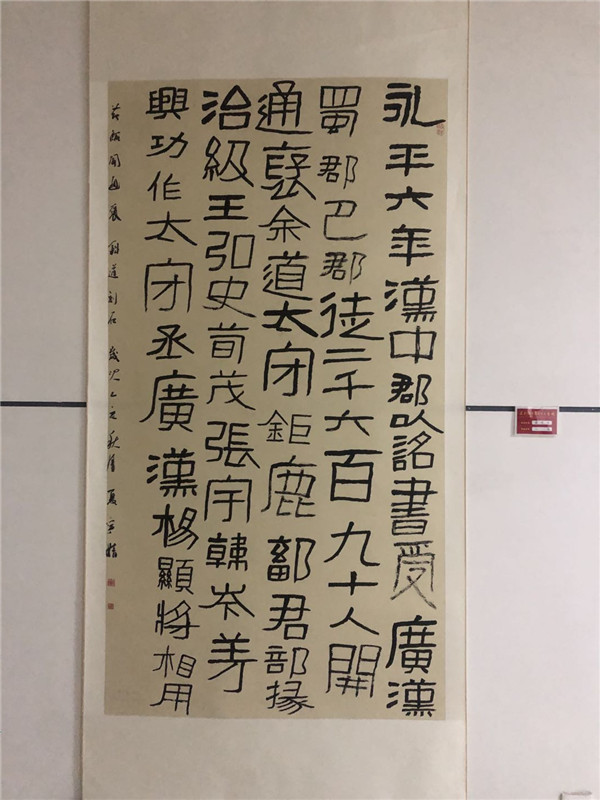 永平六年漢中郡以詔書受廣漢
蜀郡巴郡徒二千六百九十人開
通褒余道太守鉅鹿鄐君部掾
治級王弘史荀茂張宇韓岑弟
興功作太守丞廣漢楊顯將相用
開通褒斜道刻石 歲次 秋月 夏